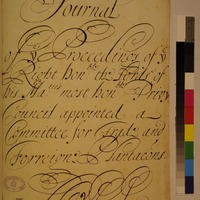 Journal
of ye Proceedings of ye
Right Honble the Lords of
his Maties most Honble Privy
Council appointed a
Committee for Trade and
Forreigne Plantacons.